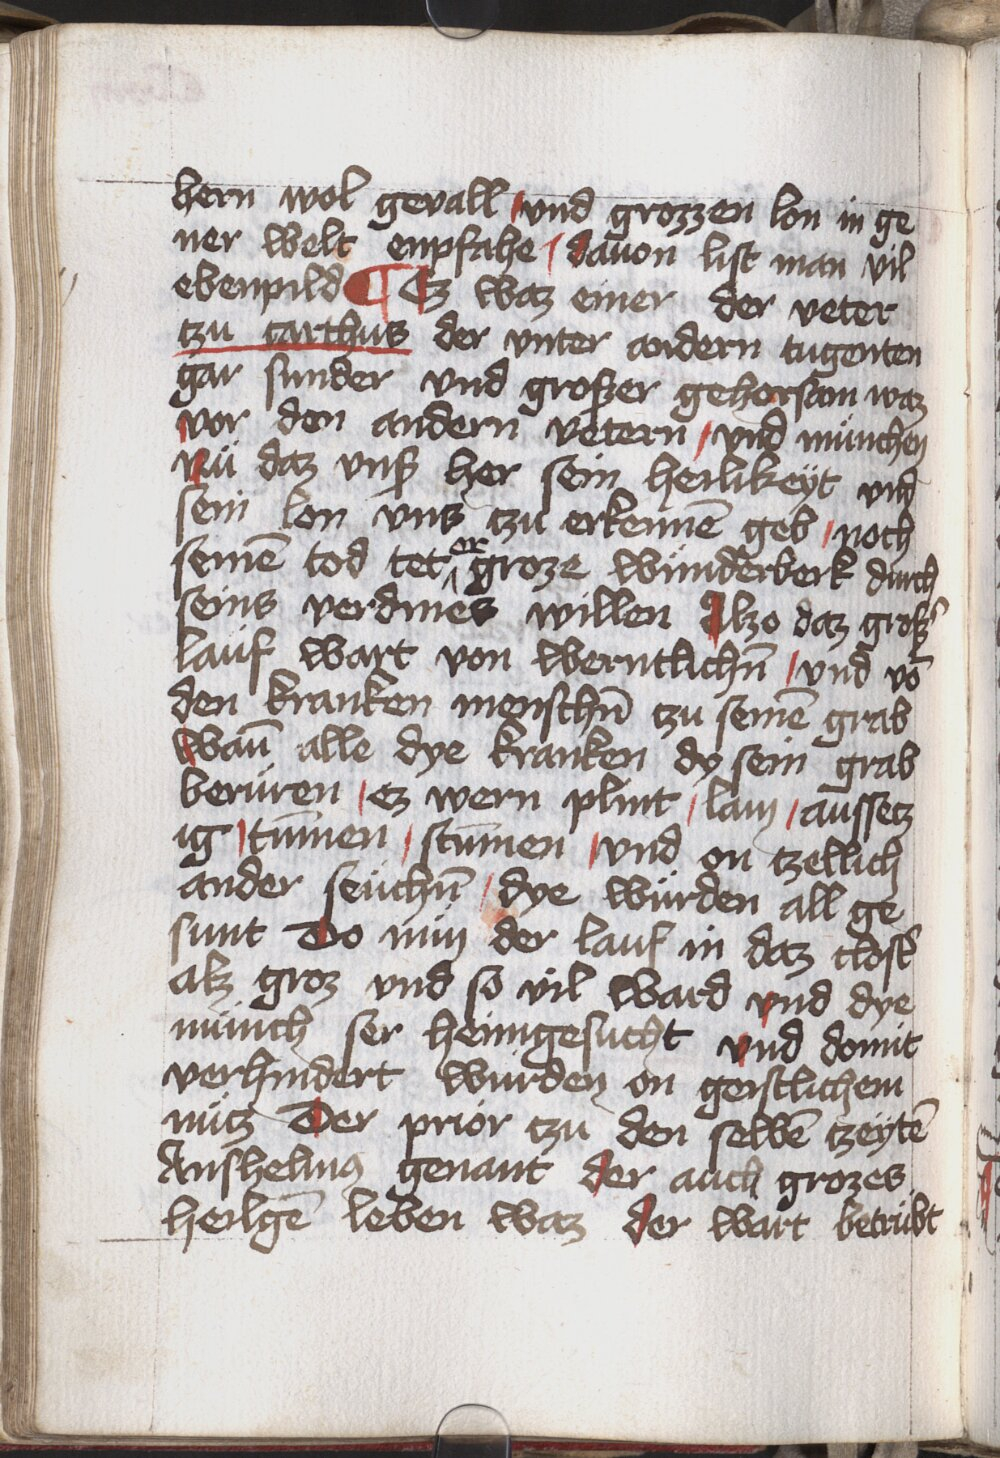 hern wol gevall / vnd grozzen lon in ge
ner welt enpfahe / dauon list man vil
ebenpild ¶ Ez waz einer der veter
tzu carthus der vnter andern tugenten
gar sunder vnd großer gehorsam waz
vor den andern vetern / vnd münchen
Nü daz vnß her sein heilikeyt vnd
sein lon vns tzu erkennē geb / noch
seinē tod tet er groze wünderberk durch
seins verdines willen Alzo daz groß
lauf wart von werntlichn̄ / vnd vō
den kranken menschn̄ tzu seinē grab
Wan̄ alle dye kranken dy sein grab
berüren / ez wern plint / lam / aussetz
ig / tum̄en / stum̄en / vnd on tzellich
ander seüchn̄ / dye würden all ge
sunt Do nün der lauf in daz clost̄
alz groz vnd so vil ward vnd dye
münch ser heimgesucht vnd domit
verhindert würden on geistlichem
nütz Der prior tzu den selbē tzeytē
Anshelmus genant der auch grozes
heilgē leben waz der wart betrübt